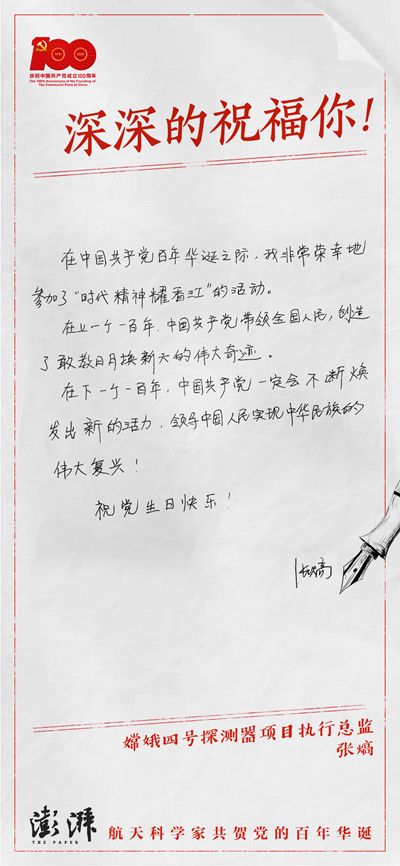 100
庆祝中国共产党成立100周年
The 100th Anniversary of the Founding of
The Communist Party of China
深深的祝福你!
在中国共产党百年华诞之际，我非常荣幸地
参加了“时代精神耀香江”的活动。
在上一个一百年，中国共产党带领全国人民，创造
了敢教日月换新天的伟大奇迹。
在下一个一百年，中国共产党一定会不断焕
发出新的活力，领导中国人民实现中华民族的
伟大复兴！
祝党生日快乐！
张熇
嫦娥四号探测器项目执行总监
张熇
澎湃
THE PAPER
航天科学家共贺党的百年华诞